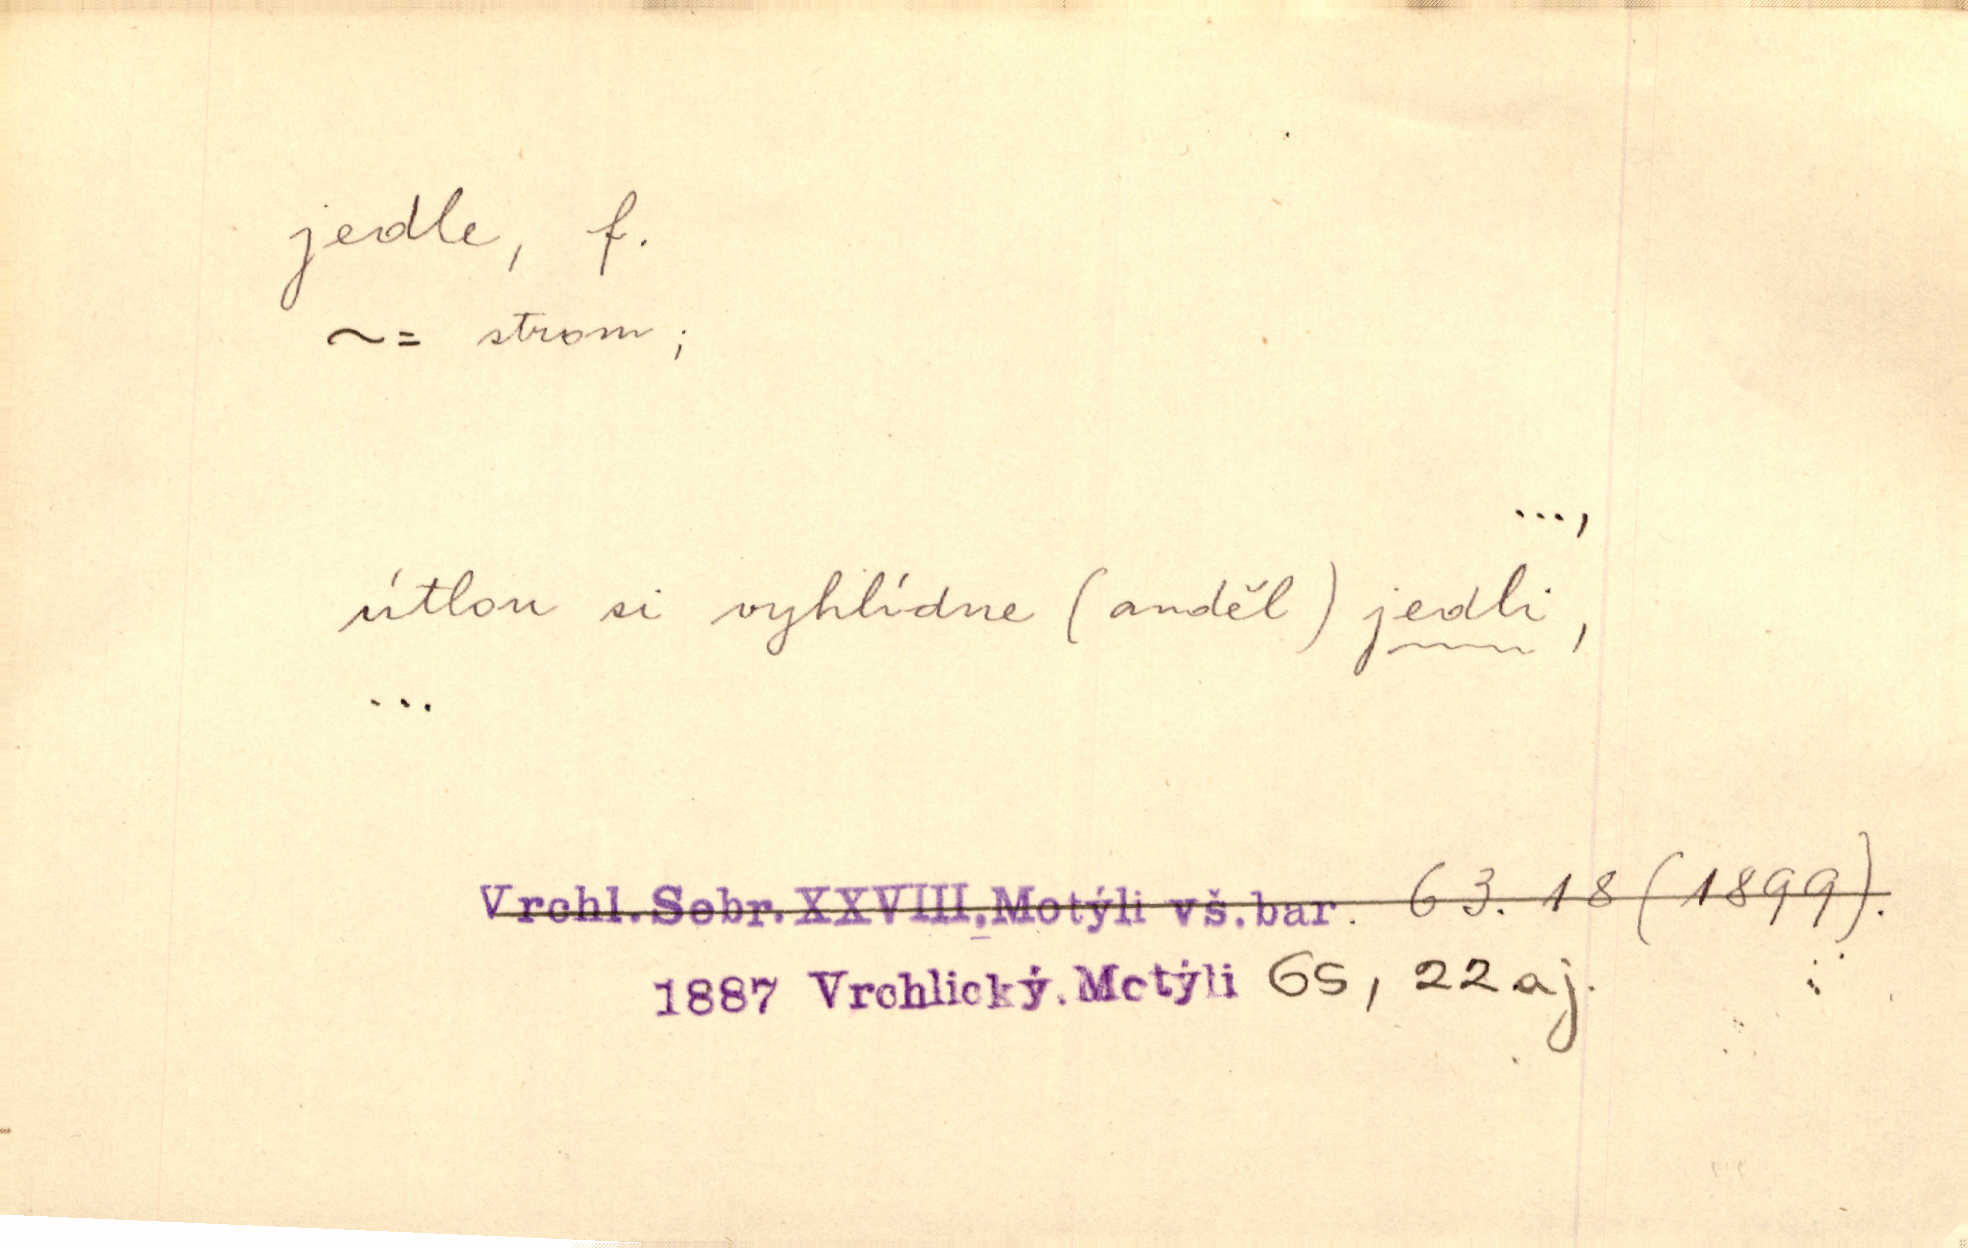 jedle, f.
~= strom;
...,
útlou si vyhlídne (anděl) jedli,
...
Vrchl.Sebr.XXVIII.Motýli vš.bar. 63. 18 (1899).
1887 Vrchlický.Motýli 65, 22 aj.